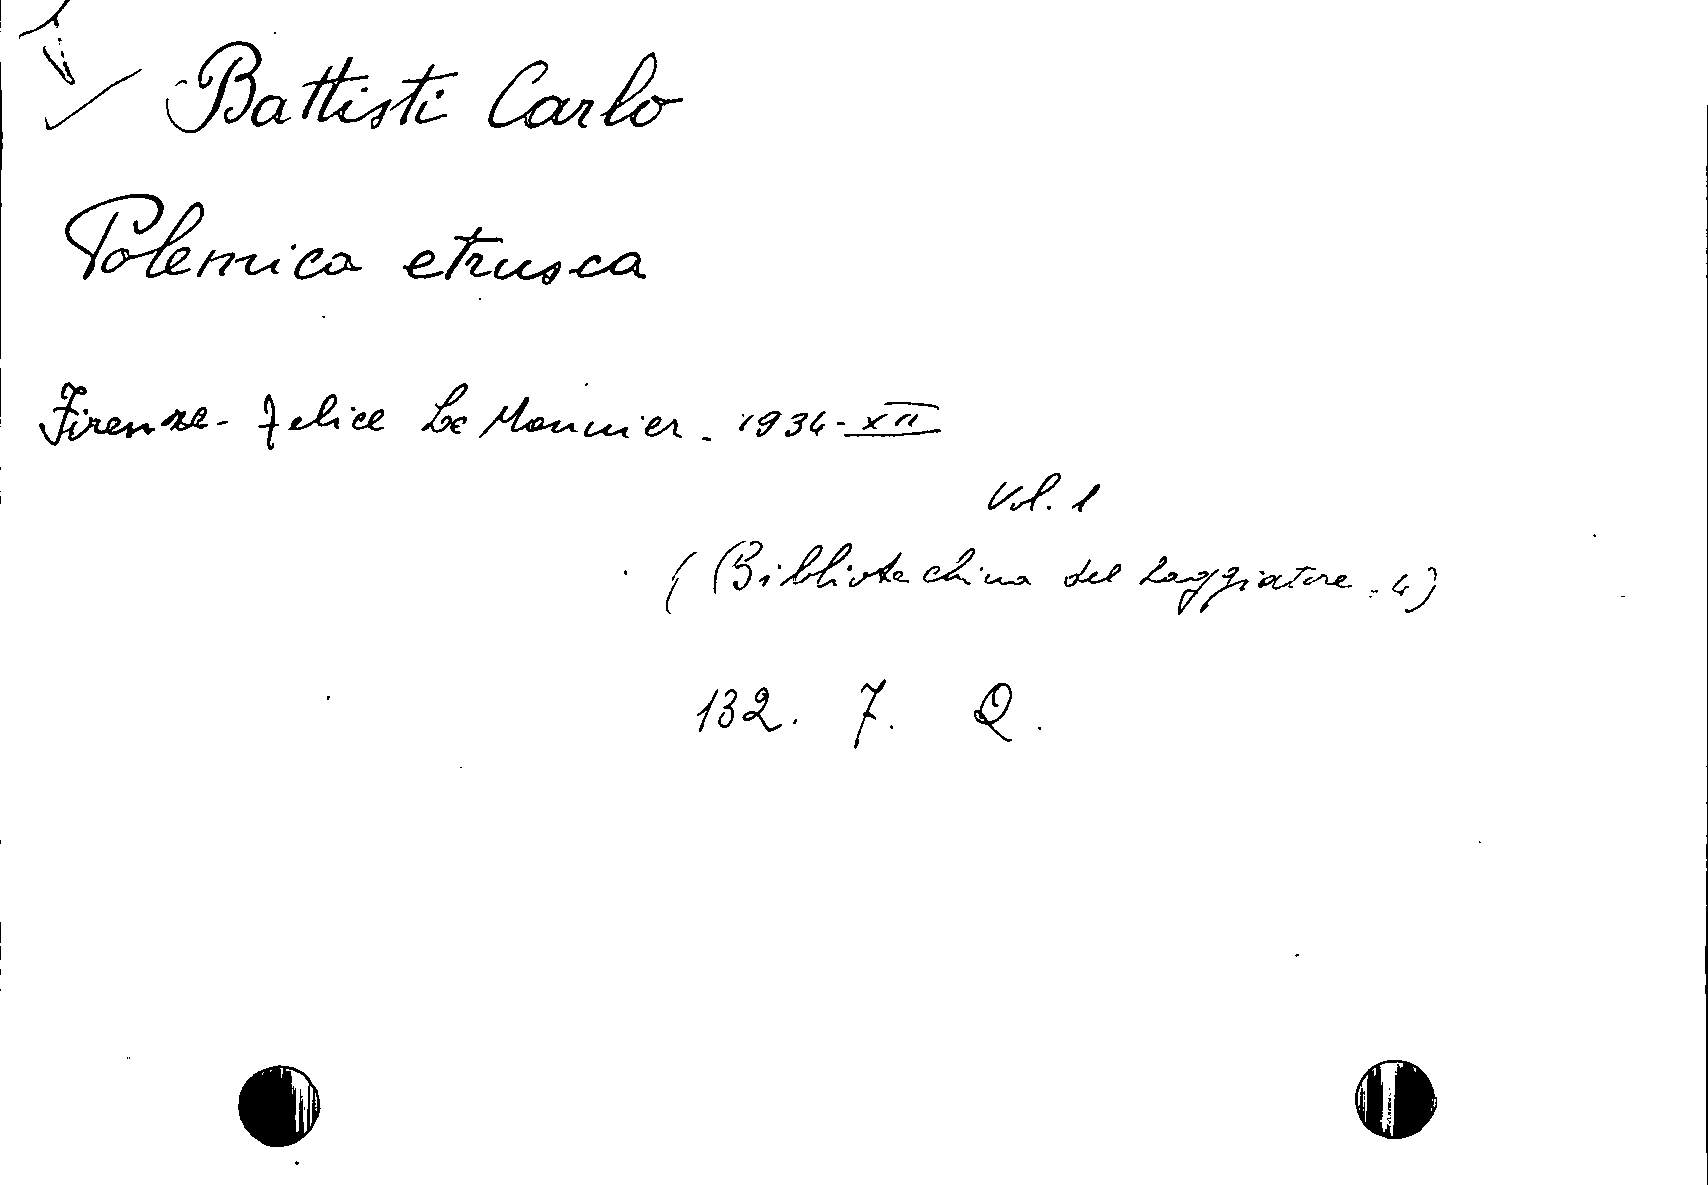 Battisti Carlo
Polemica etrusca
Firenze - Felice Le Monnier - 1934 - XII
Vol. 1
(Bibliotechina del Saggiatore - 4)
132. 7. Q.